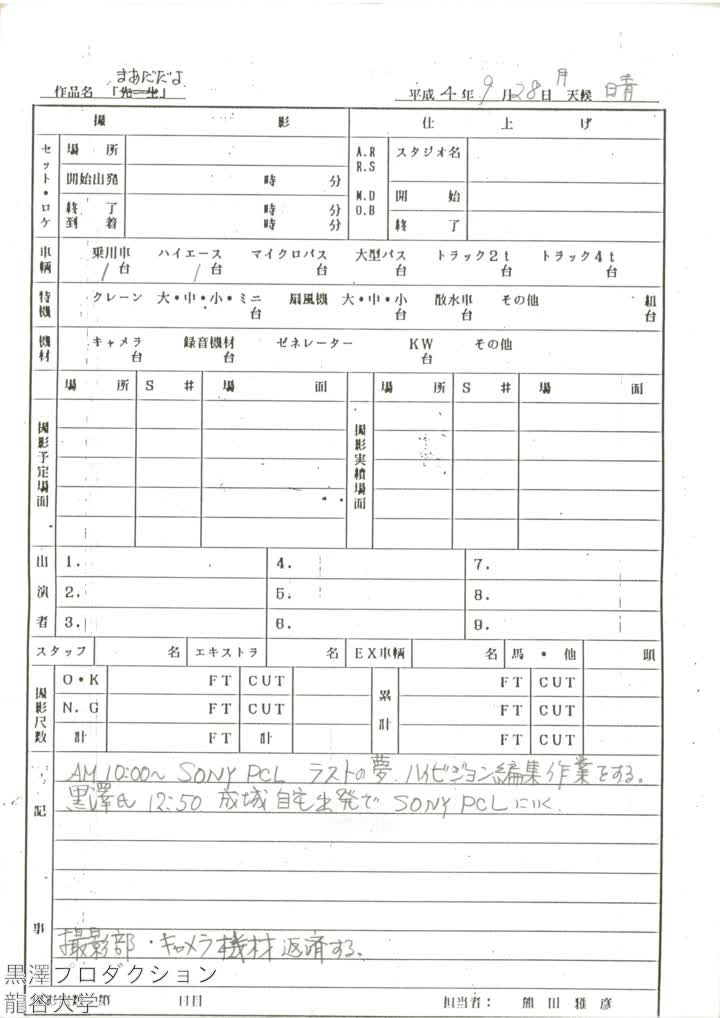 まあだだよ
作品名 「先生」 平成4年9月28日 月 天候 晴
撮 影 仕 上 げ
セット・ロケ 場 所 A.R R.S M.D O.B スタジオ名
開始出発 時 分 開 始
終 了 時 分
到 着 時 分 終 了
車輌 乗用車 ハイエース マイクロバス 大型バス トラック2t トラック4t
1台 1台 台 台 台 台
特機 クレーン 大・中・小・ミニ 扇風機 大・中・小 散水車 その他 組
台 台 台 台
機材 キャメラ 録音機材 ゼネレーター KW その他
台 台 台
撮影予定場面 場 所 S # 場 面 撮影実績場面 場 所 S # 場 面
出演者 1. 4. 7.
2. 5. 8.
3. 6. 9.
スタッフ 名 エキストラ 名 EX車輌 名 馬・他 頭
撮影尺数 O・K FT CUT 累計 FT CUT
N.G FT CUT FT CUT
計 FT 計 FT CUT
記事
AM10:00〜 SONY PCL ラストの夢 ハイビジョン編集作業をする。
黒澤氏 12:50 成城自宅出発で SONY PCLにいく.
撮影部・キャメラ機材返済する.
黒澤プロダクション
龍谷大学
第 日目 担当者: 熊田雅彦